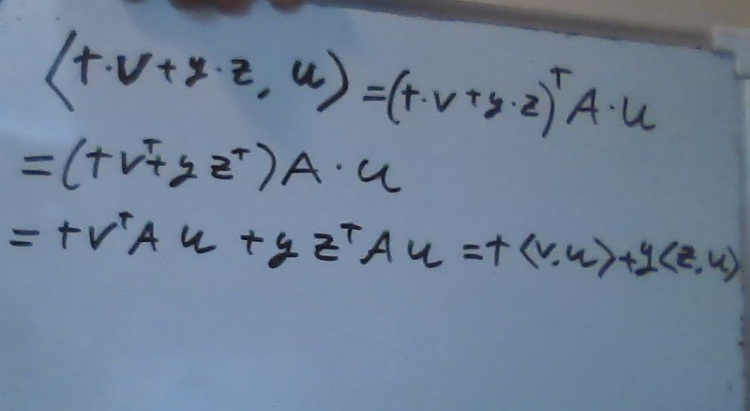 ⟨t·v+y·z, u⟩=(t·v+y·z)ᵀA·u
=(tvᵀ+yzᵀ)A·u
=tvᵀAu+yzᵀAu=t⟨v,u⟩+y⟨z,u⟩